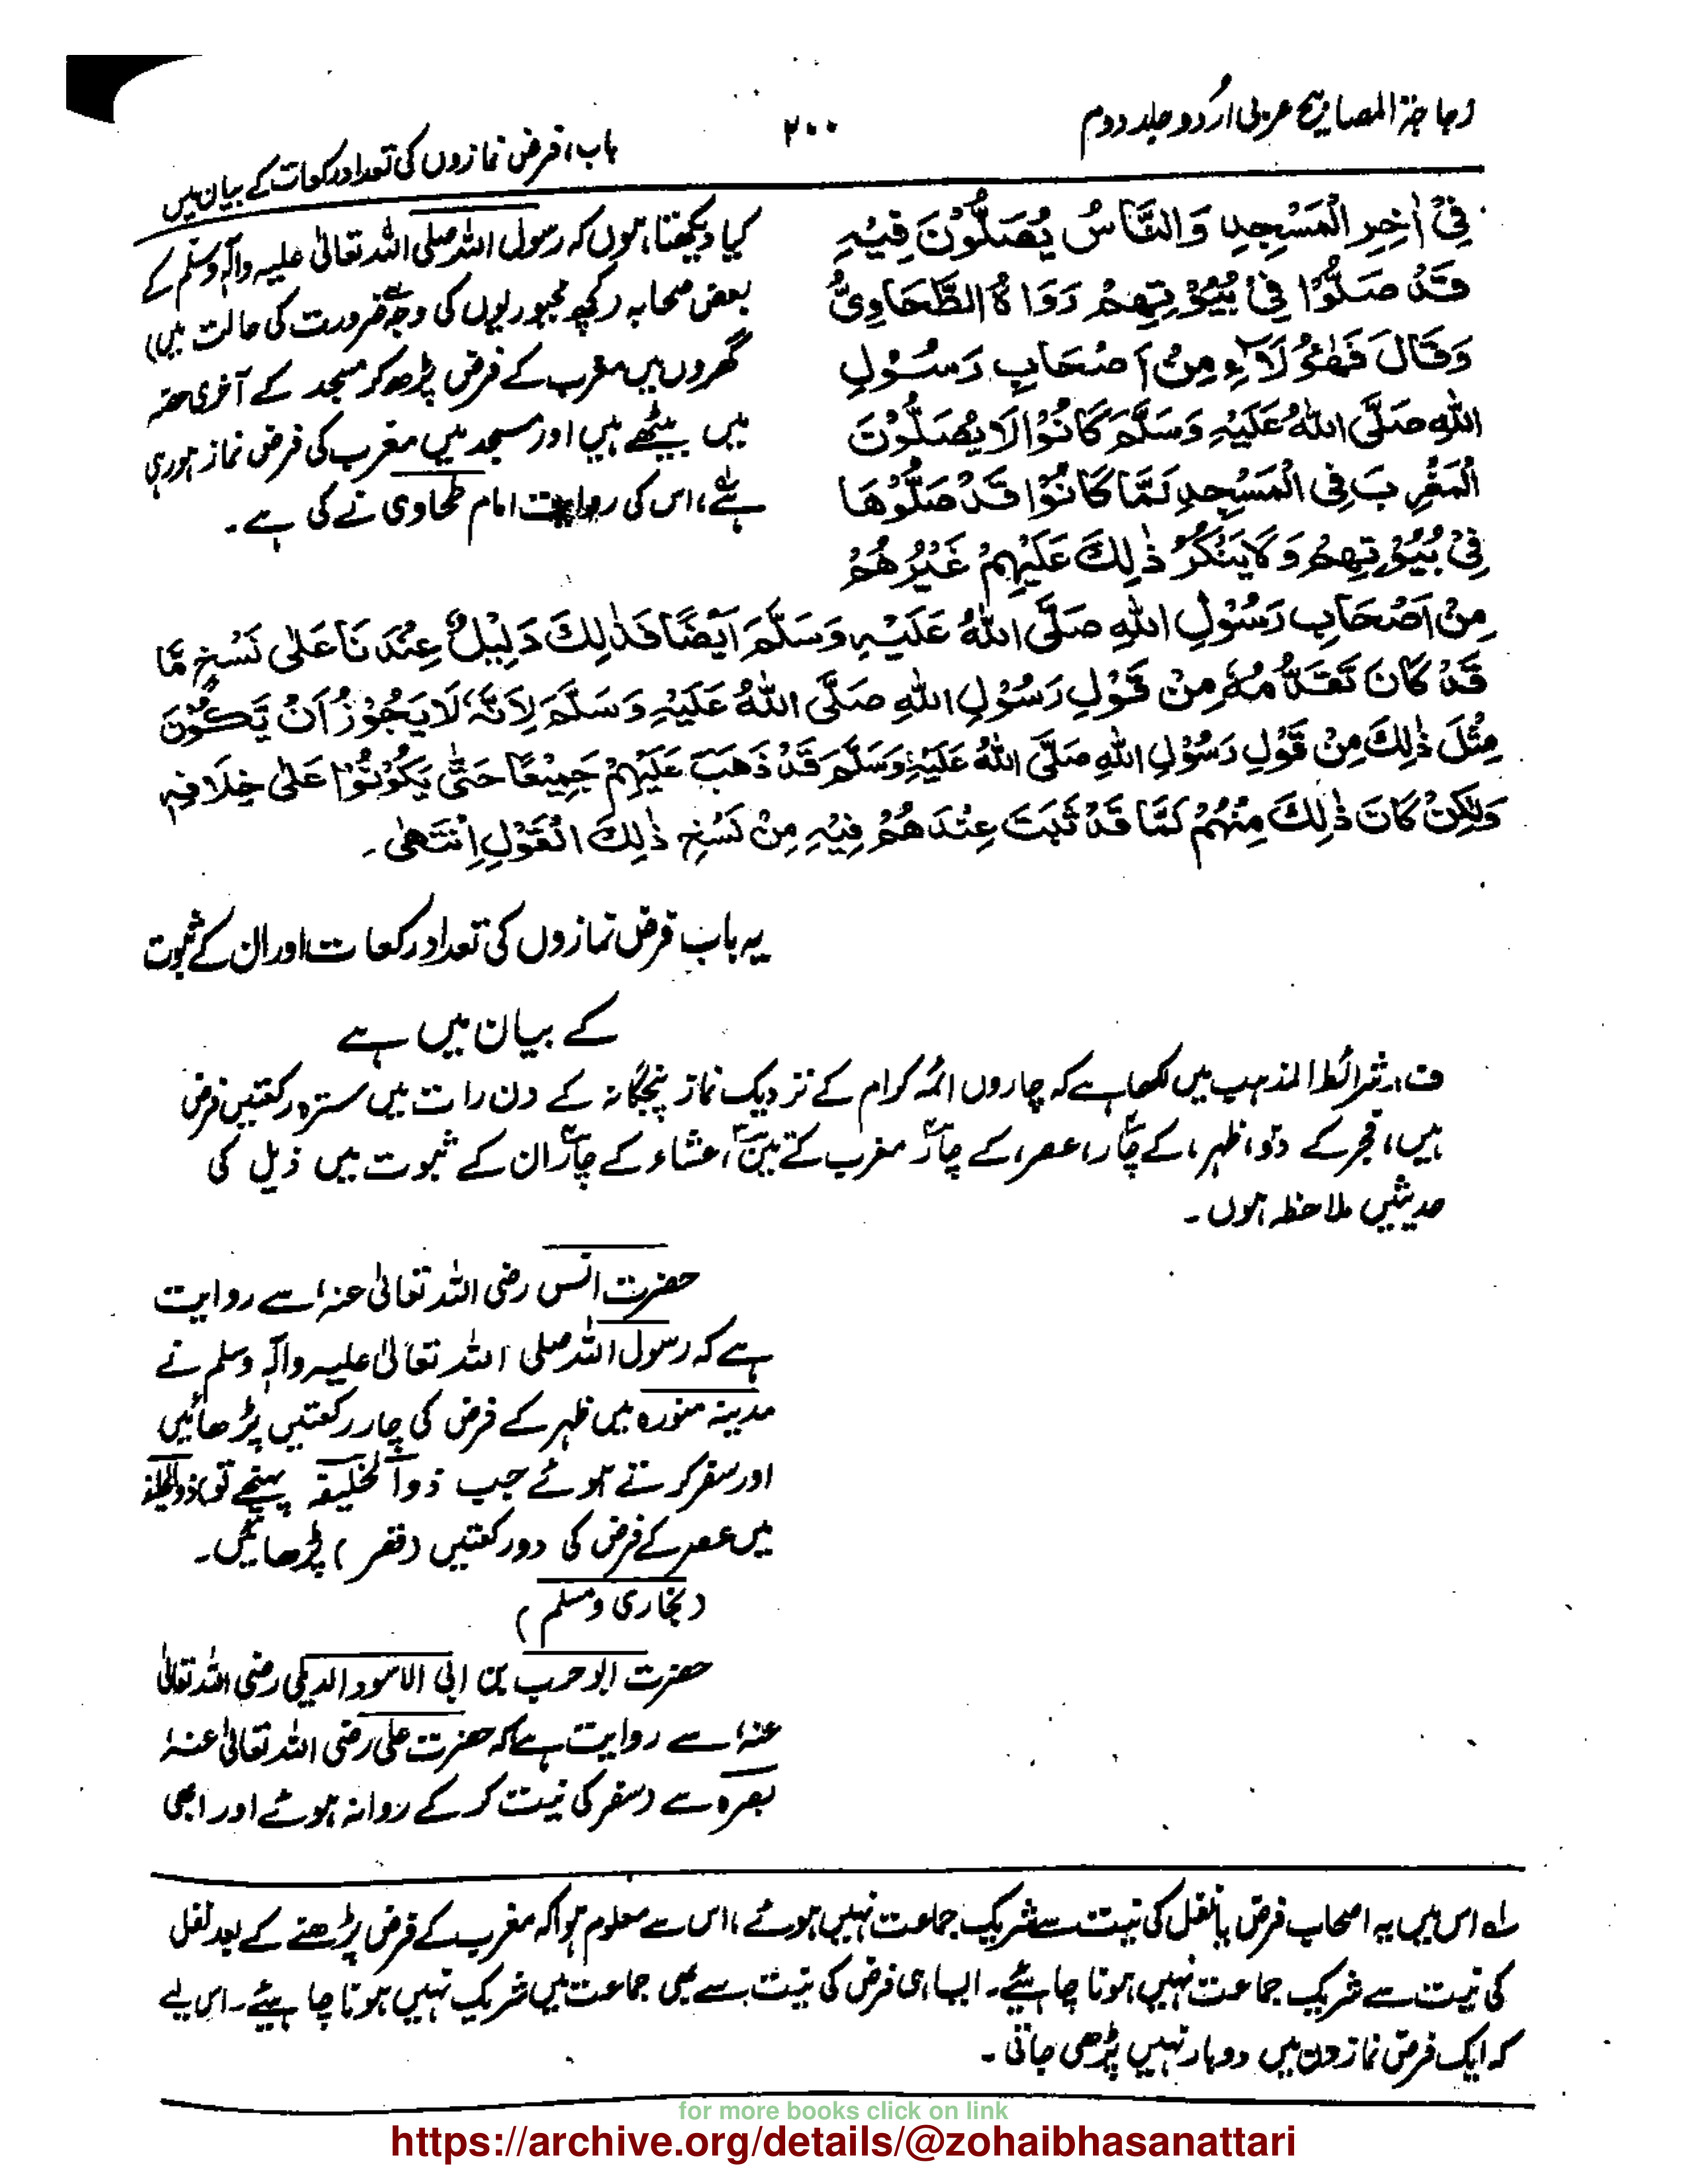 زجاجۃ المصابیح عربی اردو جلد دوم
۲۰۰
باب، فرض نمازوں کی تعداد رکعات کے بیان میں
فِیْ اٰخِرِ الْمَسْجِدِ وَالنَّاسُ یُصَلُّوْنَ فِیْہِ
قَدْ صَلَّوْا فِیْ بُیُوْتِھِمْ رَوَاہُ الطَّحَاوِیُّ
وَقَالَ فَھٰؤُلَاۤءِ مِنْ اَصْحَابِ رَسُوْلِ
اللّٰہِ صَلَّی اللّٰہُ عَلَیْہِ وَسَلَّمَ کَانُوْا لَا یُصَلُّوْنَ
الْمَغْرِبَ فِی الْمَسْجِدِ لَمَّا کَانُوْا قَدْ صَلُّوْھَا
فِیْ بُیُوْتِھِمْ وَلَا یُنْکِرُ ذٰلِکَ عَلَیْھِمْ غَیْرُھُمْ
مِنْ اَصْحَابِ رَسُوْلِ اللّٰہِ صَلَّی اللّٰہُ عَلَیْہِ وَسَلَّمَ اَیْضًا فَذٰلِکَ دَلِیْلٌ عِنْدَنَا عَلٰی نَسْخِ مَا
قَدْ کَانَ تَقَدَّمَہٗ مِنْ قَوْلِ رَسُوْلِ اللّٰہِ صَلَّی اللّٰہُ عَلَیْہِ وَسَلَّمَ لِاَنَّہٗ لَا یَجُوْزُ اَنْ یَّکُوْنَ
مِثْلَ ذٰلِکَ مِنْ قَوْلِ رَسُوْلِ اللّٰہِ صَلَّی اللّٰہُ عَلَیْہِ وَسَلَّمَ قَدْ ذَھَبَ عَلَیْھِمْ جَمِیْعًا حَتّٰی یَکُوْنُوْا عَلٰی خِلَافِہٖ
وَلٰکِنْ کَانَ ذٰلِکَ مِنْھُمْ لَمَّا قَدْ ثَبَتَ عِنْدَھُمْ فِیْہِ مِنْ نَسْخِ ذٰلِکَ الْقَوْلِ اِنْتَھٰی۔
کیا دیکھتا ہوں کہ رسول اللہ صلی اللہ تعالٰی علیہ وآلہٖ وسلم کے
بعض صحابہ (کچھ مجبوریوں کی وجہ ضرورت کی حالت میں)
گھروں میں مغرب کے فرض پڑھ کر مسجد کے آخری حصہ
میں بیٹھے ہیں اور مسجد میں مغرب کی فرض نماز ہو رہی
ہے، اس کی روایت امام طحاوی نے کی ہے۔
یہ باب فرض نمازوں کی تعداد رکعات اور ان کے ثبوت
کے بیان میں ہے
ف: شرائط المذہب میں لکھا ہے کہ چاروں ائمہ کرام کے نزدیک نماز پنجگانہ کے دن رات میں سترہ رکعتیں فرض
ہیں، فجر کے دو، ظہر، کے چار، عصر، کے چار، مغرب کے تین، عشاء کے چار، ان کے ثبوت میں ذیل کی
حدیثیں ملاحظہ ہوں۔
حضرت انس رضی اللہ تعالٰی عنہٗ سے روایت
ہے کہ رسول اللہ صلی اللہ تعالٰی علیہ وآلہٖ وسلم نے
مدینہ منورہ میں ظہر کے فرض کی چار رکعتیں پڑھائیں
اور سفر کرتے ہوئے جب ذوالحلیفہ پہنچے تو ذوالحلیفہ
میں عصر کے فرض کی دو رکعتیں (قصر) پڑھائیں۔
(بخاری ومسلم)
حضرت ابو حرب بن ابی الاسود الدیلی رضی اللہ تعالٰی
عنہٗ سے روایت ہے کہ حضرت علی رضی اللہ تعالٰی عنہٗ
بصرہ سے (سفر کی نیت کر کے روانہ ہوئے اور ابھی
لہ اس میں یہ اصحاب فرض یا نفل کی نیت سے شریک جماعت نہیں ہوئے، اس سے معلوم ہوا کہ مغرب کے فرض پڑھنے کے بعد نفل
کی نیت سے شریک جماعت نہیں ہونا چاہیئے۔ ایسا ہی فرض کی نیت سے بھی جماعت میں شریک نہیں ہونا چاہیئے۔ اس لیے
کہ ایک فرض نماز دن میں دوبار نہیں پڑھی جاتی۔
for more books click on link
https://archive.org/details/@zohaibhasanattari